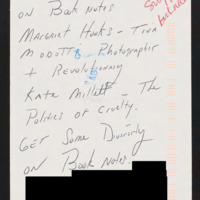 ON Book Notes
Margaret Hooks - Tina
Modotti - Photographer
+ Revolutionary
Kate Millett - The
Politics of Cruelty.
Get Some Diversity
ON Book Notes